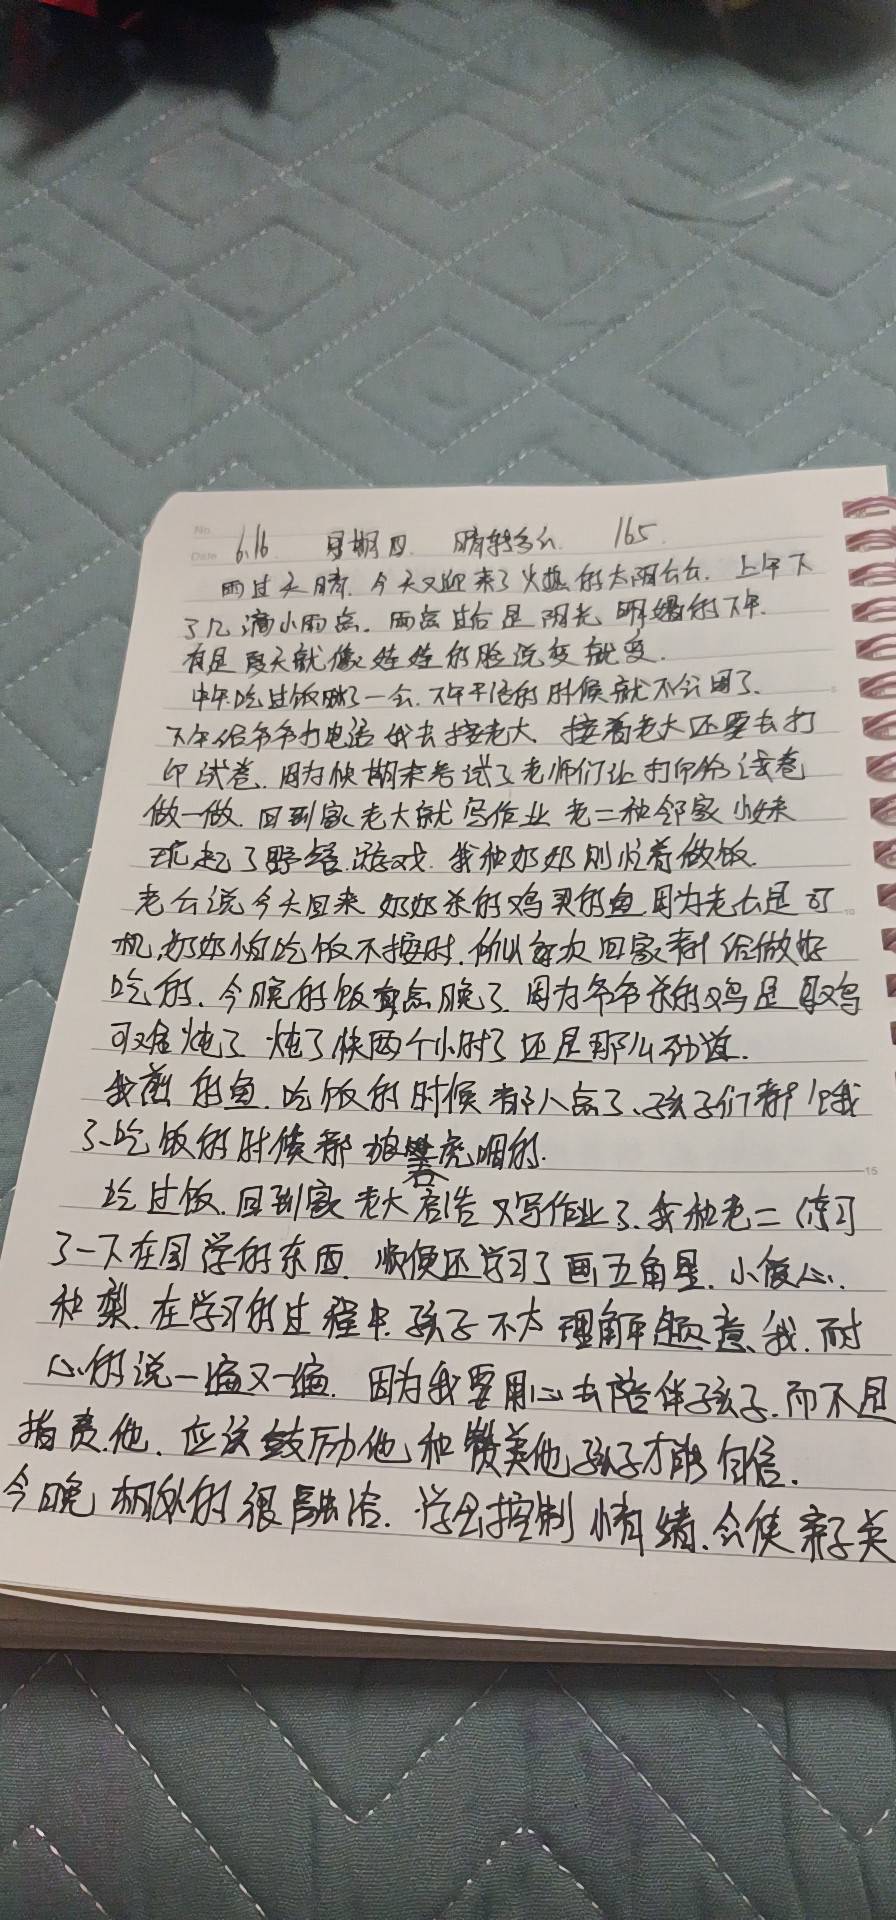 No.
Date 6.16. 星期四. 晴转多云. 165.
雨过天晴. 今天又迎来了火热的太阳公公. 上午下
了几滴小雨点. 雨点过后是阳光明媚的下午.
有是夏天就像娃娃的脸说变就变.
中午吃过饭眯了一会. 下午干活的时候就不会困了.
下午给爷爷打电话我去接老大. 接着老大还要去打
印试卷. 因为快期末考试了老师们让打印份试卷
做一做. 回到家老大就写作业老二和邻家小妹
玩起了野营游戏. 我和奶奶则忙着做饭.
老公说今天回来奶奶杀的鸡买的鱼因为老公是司
机,奶奶怕吃饭不按时.所以每次回家都给做好
吃的. 今晚的饭有点晚了. 因为爷爷杀的鸡是
可难炖了 炖了快两个小时了还是那么劲道.
我煎的鱼. 吃饭的时候都八点了、孩子们都饿
了、吃饭的时候都狼吞虎咽的.
吃过饭. 回到家老大又写作业了. 我和老二练习
了一下在园学的东西. 顺便还学习了画五角星. 小爱心.
和梨. 在学习的过程中. 孩子不太理解题意、我.耐
心的说一遍又一遍. 因为我要用心去陪伴孩子. 而不是
指责他. 应该鼓励他和赞美他孩子才能自信.
今晚相处的很融洽. 学会控制情绪. 会使亲子关
10
15